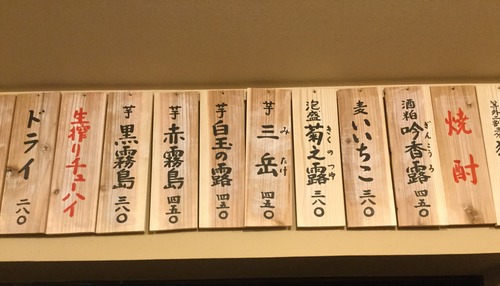 焼酎
酒粕 吟香露 四五〇
ぎんこうろ
麦 いいちこ 三八〇
泡盛 菊之露 三八〇
きくのつゆ
芋 三岳 四五〇
みたけ
芋 白玉の露 四五〇
芋 赤霧島 四五〇
芋 黒霧島 三八〇
生搾りチューハイ
ドライ 二八〇